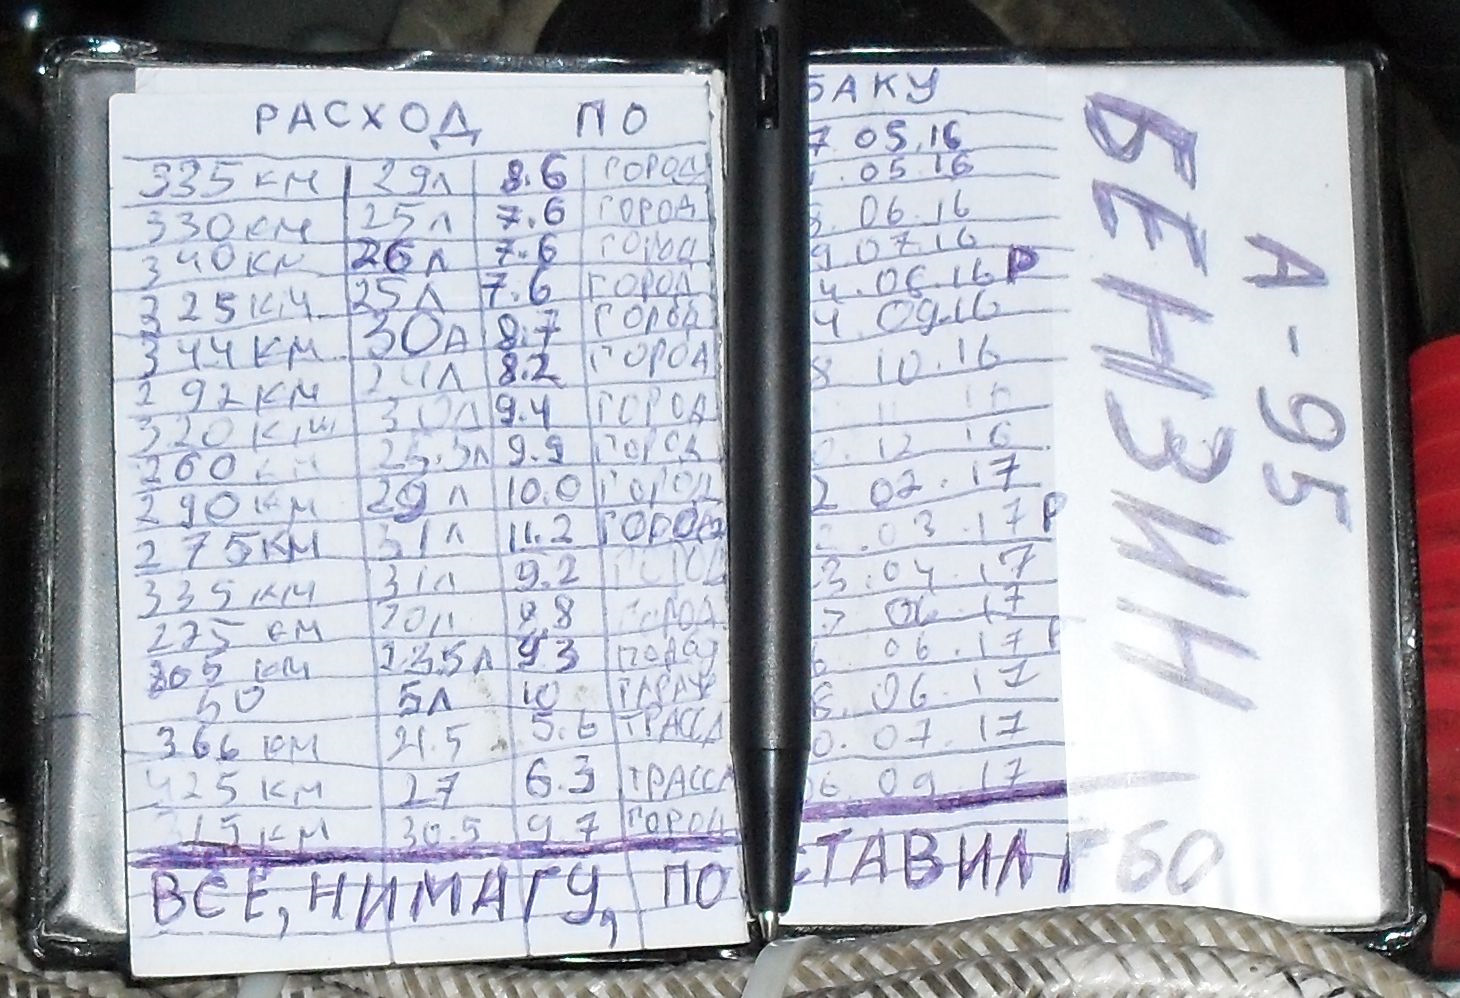 РАСХОД ПО БАКУ
335 КМ 29Л 8.6 ГОРОД 7.05.16
330 КМ 25Л 7.6 ГОРОД .05.16
340 КМ 26Л 7.6 ГОРОД 8.06.16
325 КМ 25Л 7.6 ГОРОД 9 07.16
344 КМ 30Л 8.7 ГОРОД 4.08.16 Р
292 КМ 24Л 8.2 ГОРОД 4.09.16
320 КМ 30Л 9.4 ГОРОД 8 10.16
260 КМ 25.5Л 9.9 ГОРОД 11 16
290 КМ 29 Л 10.0 ГОРОД 12 16
275 КМ 31Л 11.2 ГОРОД 2 02.17
335 КМ 31Л 9.2 ГОРОД 2.03.17 Р
275 КМ 20Л 8.8 ГОРОД 3.04.17
205 КМ 23.5Л 9.3 ГОРОД 7 06.17
50 5Л 10 ГАРАЖ 6 06.17
366 КМ 21.5 5.6 ТРАССА 6.06.17
425 КМ 27 6.3 ТРАССА 0.07.17
315 КМ 30.5 9.7 ГОРОД 06 09 17
ВСЕ, НИМАГУ, ПОСТАВИЛ ГБО
БЕНЗИН
А-95